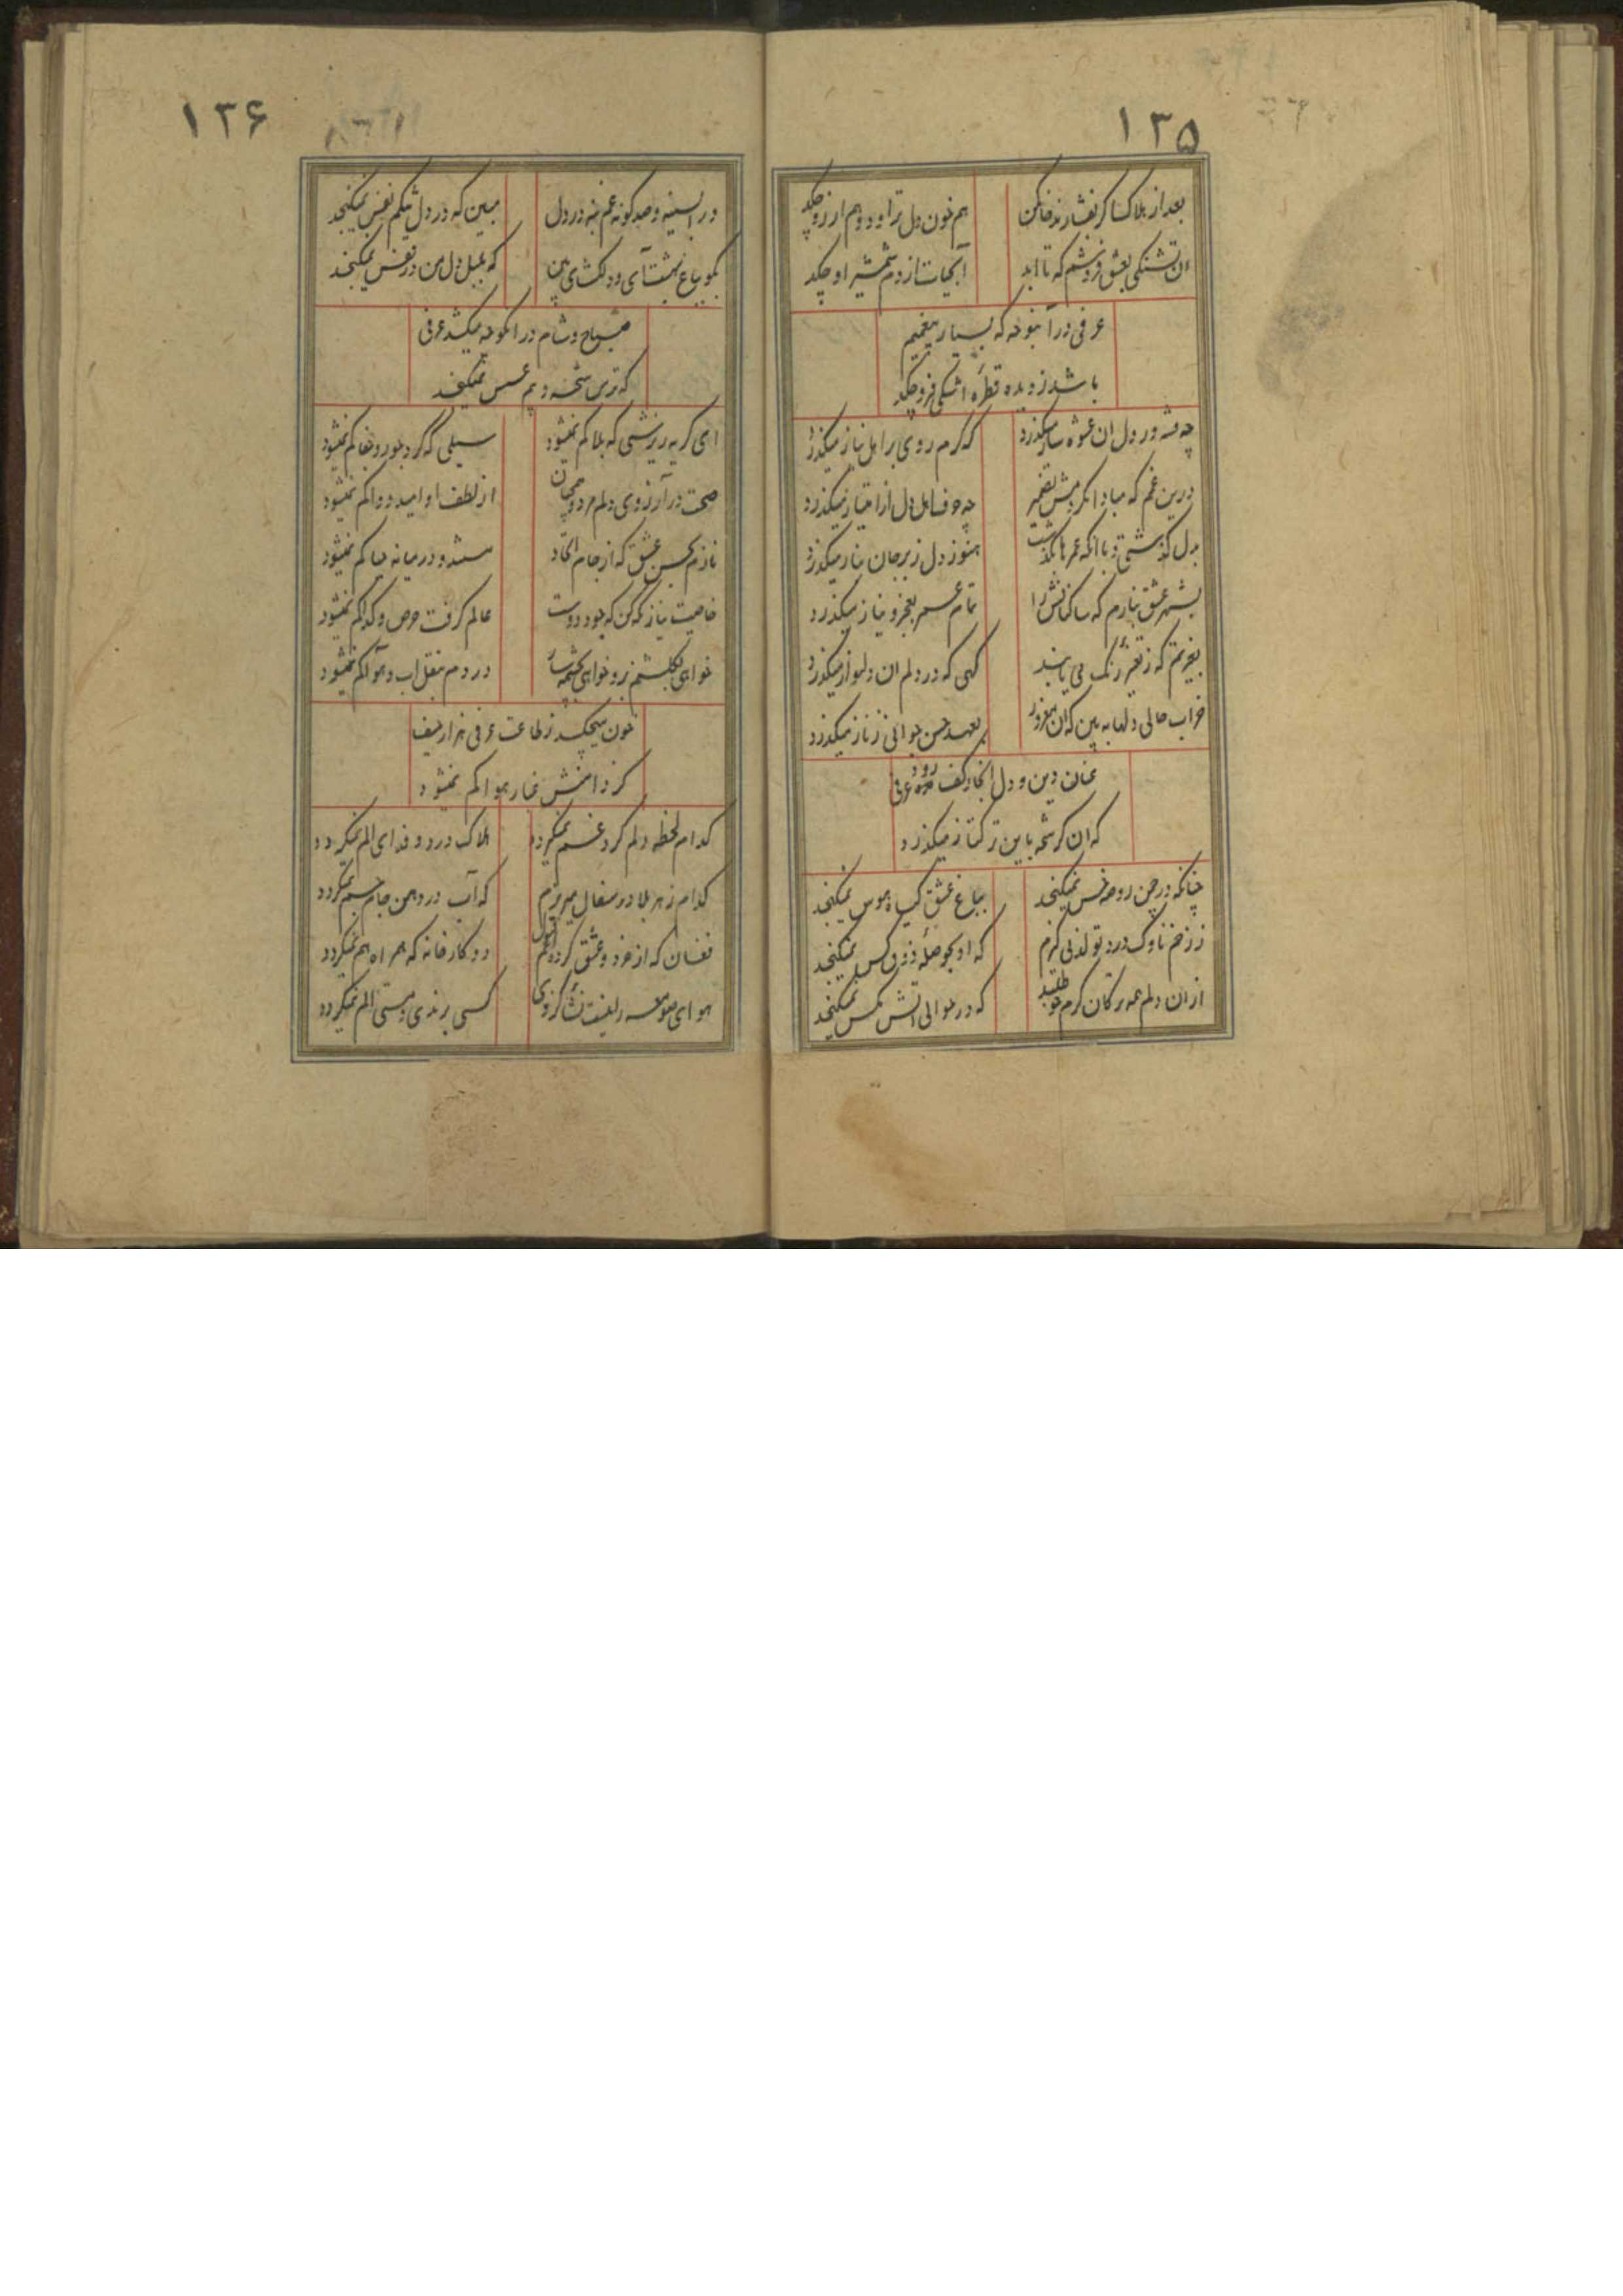 ۱۳۵
بعد از هلاک خاک من هم خون دل تراود و هم ارزو چکد
ان تشنگی بعشق فروشم که تا ابد ابحیات از دم شمشیر او چکد
عرفی درآ بنوحه که بسیار بیغمیم
باشد ز دیده قطره اشکی فرو چکد
چه فتنه در دل ان عشوه ساز میکذرد که کرم روی بر اهل نیاز میکذرد
درین غم که مبادا چه بر دل از امتیاز میکذرد
بدل کذشتی و با انکه عمرها بکذشت هنوز دل ز بر جان بناز میکذرد
بشهر عشق بنازم که ساکنانش را تمام عمر بعجز و نیاز میکذرد
بغیرتم که ز تغییر رنک می یابند کهی که در دلم ان دلنواز میکذرد
خراب حالی دلها به بین که ان مغرور بعهد حسن جوانی ز ناز میکذرد
عنان دین و دل اینجا ز کف رود عرفی
که ان کرشمه باین ترکتاز میکذرد
چنانکه در چمن روضه خس نمیکنجد بباغ عشق کیاه هوس نمیکنجد
ز زخم ناوک درد تو لذتی کیرم که او بحوصله ذوق کس نمیکنجد
ازان دلم همه برکان کرم خو طلبید که در حوالی اتش مکس نمیکنجد
۱۳۶
درا بسینه و صد کونه غم بنه در دل مبین که در دل تنکم نفس نمیکنجد
مکو بباغ بهشت آی و دلکشائی بین که بلبل دل من در قفس نمیکنجد
صباح و شام در انکوچه میکشد عرفی
که ترس شحنه و بیم عسس نمیکنجد
ای کریه ریزشی که بلا کم نمیشود سیلی که کرد جور و جفا کم نمیشود
صحت در آرزوی دلم مرد و همچنان از لطف او امید دوا کم نمیشود
نازم بحسن عشق که از جام اتحاد مستند و درمیانه حیا کم نمیشود
خاصیت نیاز نکه کن که جود دوست عالم کرفت حرص و کدا کم نمیشود
خواهی بکلستم برو خواهی بچشمه سار دردم بنقل اب و هوا کم نمیشود
خون میچکد ز طاعت عرفی هزار حیف
کز دامنش غبار هوا کم نمیشود
کدام لحظه دلم کرد غم نمیکردد هلاک درد و فدای الم نمیکردد
کدام زهر بلا در سفال میریزم که آب در دهن جام جم نمیکردد
فغان که از خرد و عشق کرده اند دو کارخانه که همراه هم نمیکردد
هوای صومعه کسی برندی و مستی الم نمیکردد